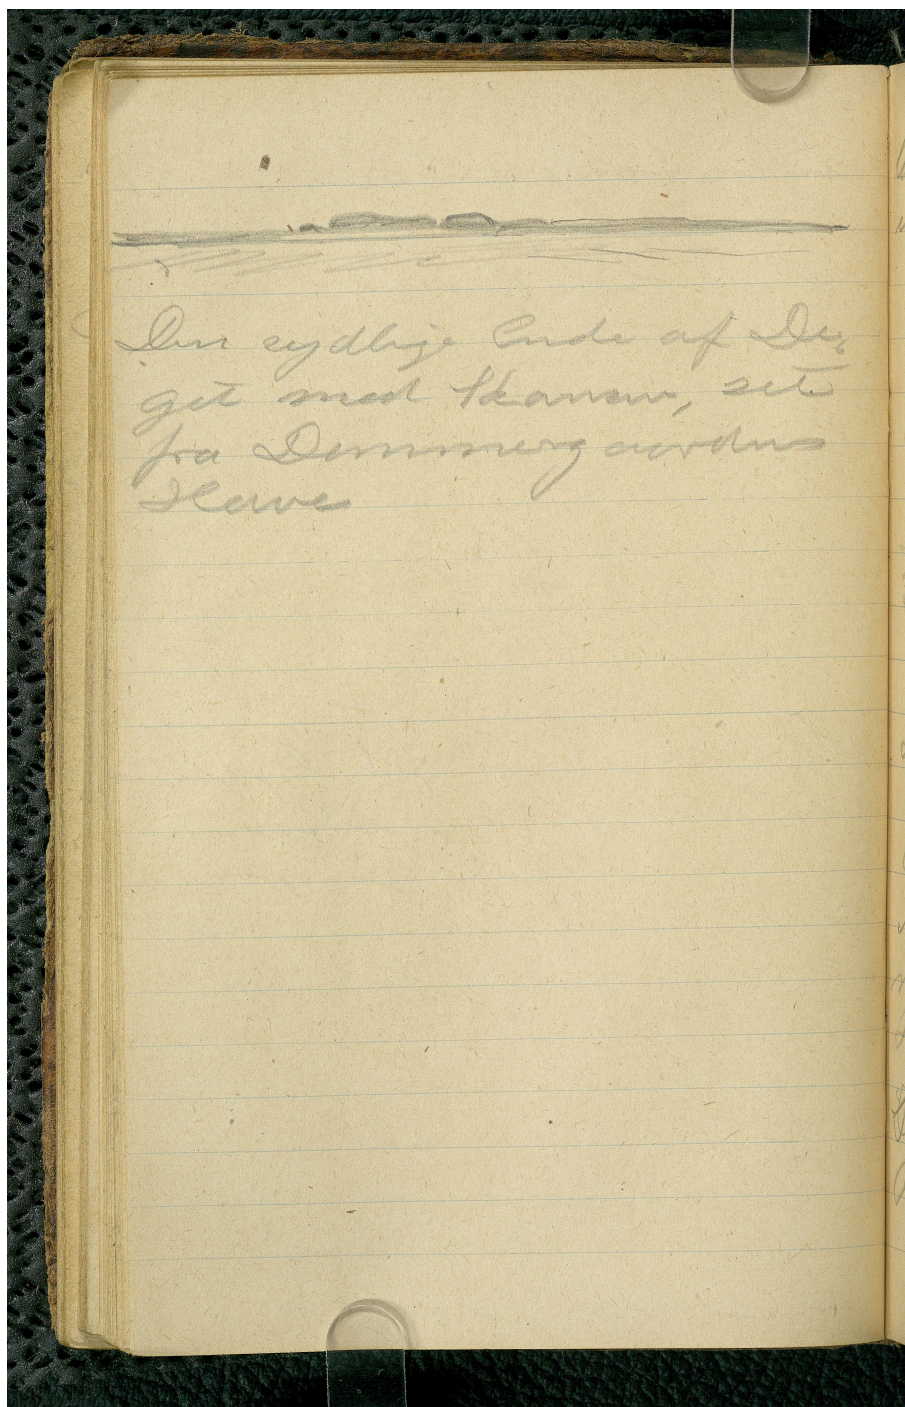 Den sydlige Ende af Di-
get med Skansen, set
fra Dommergaardens
Have